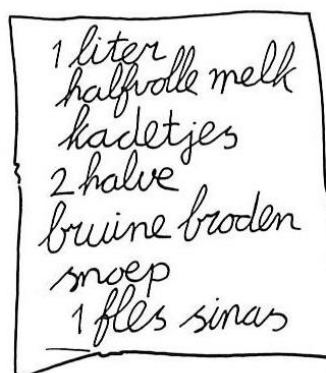 1 liter
halfvolle melk
kadetjes
2 halve
bruine broden
snoep
1 fles sinas